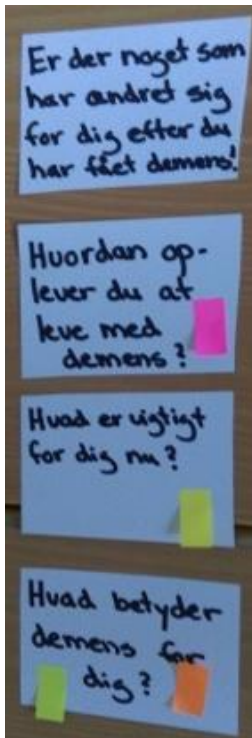 Er der noget som
har ændret sig
for dig efter du
har fået demens!
Hvordan op-
lever du at
leve med
demens?
Hvad er vigtigt
for dig nu?
Hvad betyder
demens for
dig?